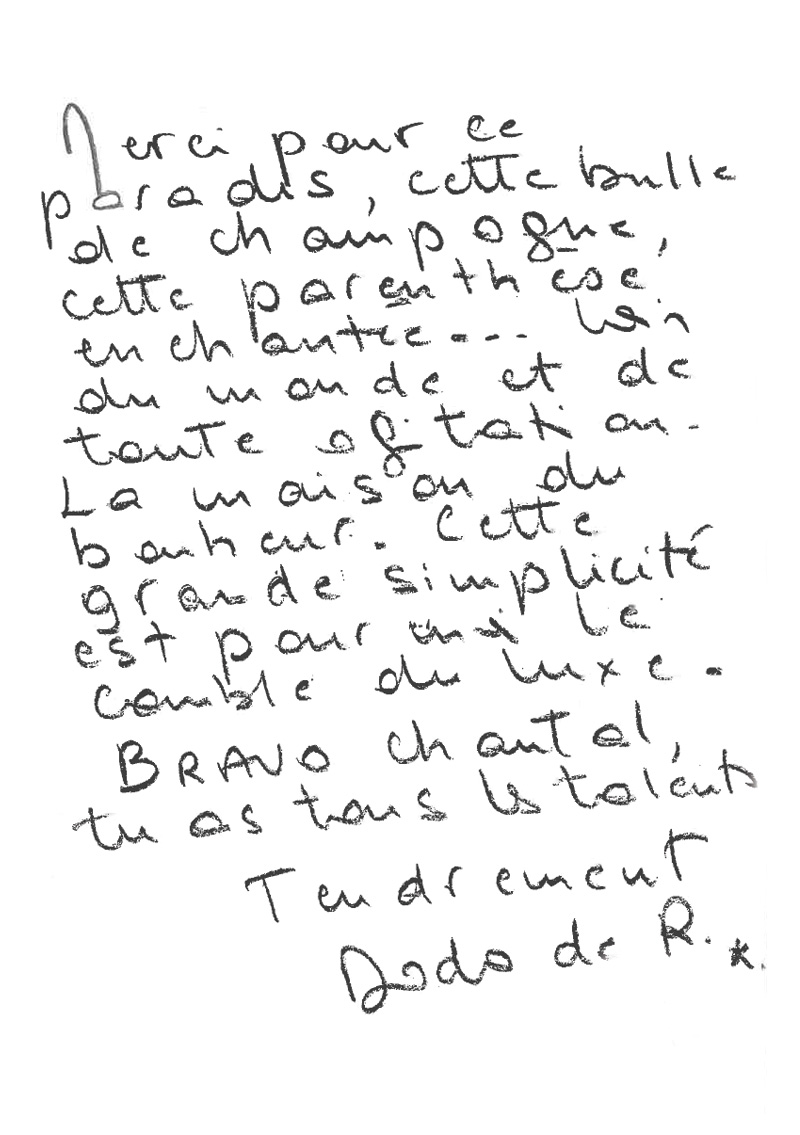 Merci pour ce
paradis, cette bulle
de champagne,
cette parenthèse
enchantée... loin
du monde et de
toute agitation.
La maison du
bonheur. Cette
grande simplicité
est pour moi le
comble du luxe.
BRAVO Chantal,
tu as tous les talents
Tendrement
Dodo de R.*.